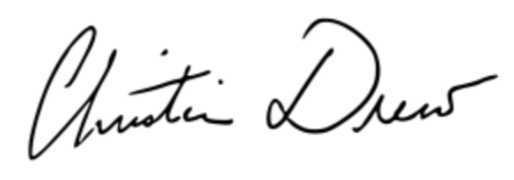 Christin Drew